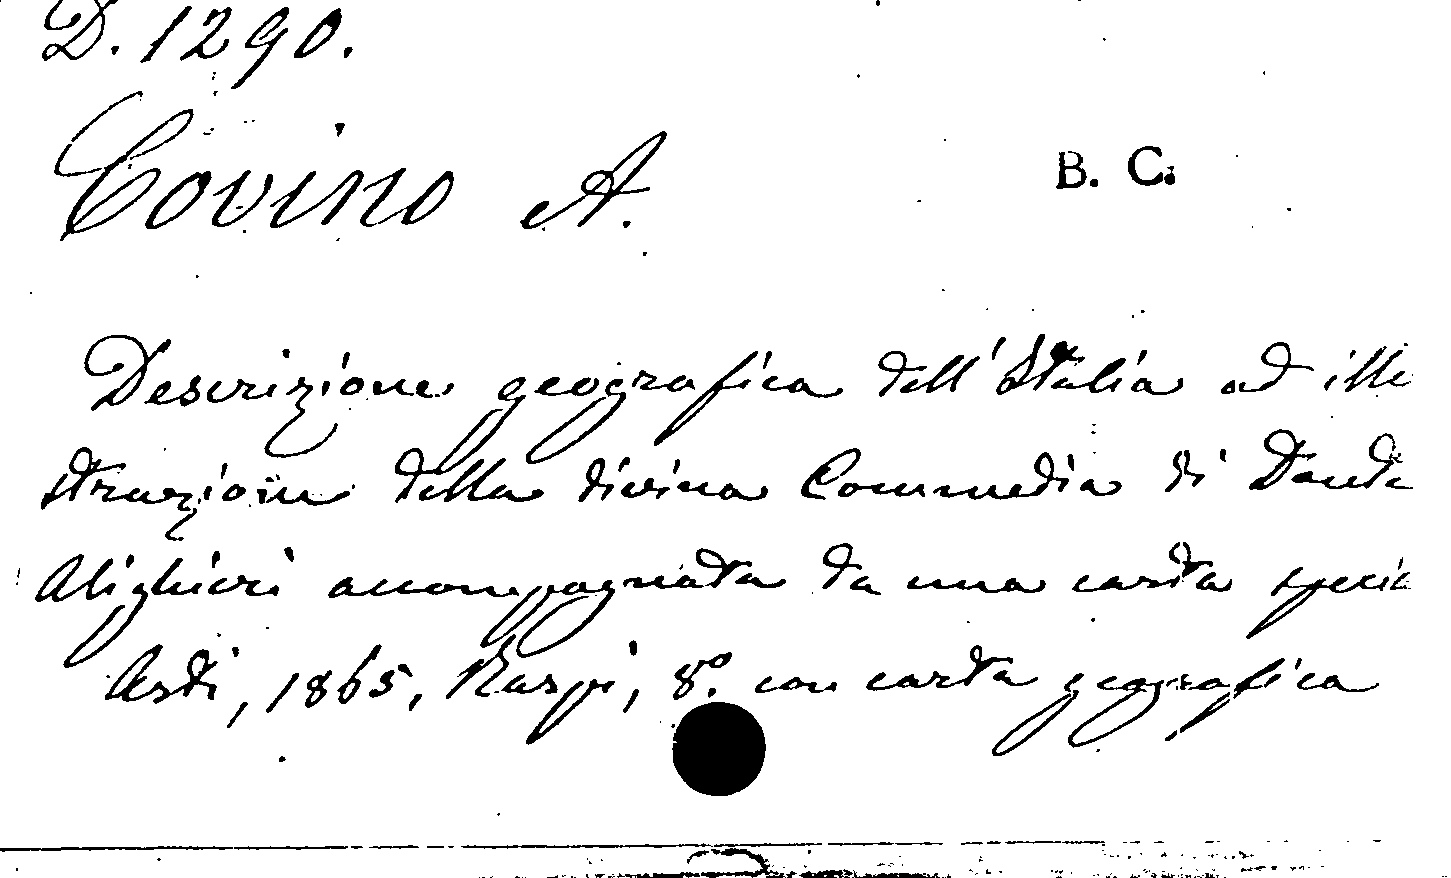 D. 1290.
Covino A.
B. C.
Descrizione geografica dell'Italia ad illu
strazione della divina Commedia di Dante
Alighieri accompagnata da una carta specia
Asti, 1865, Raspi, 8º. con carta geografica